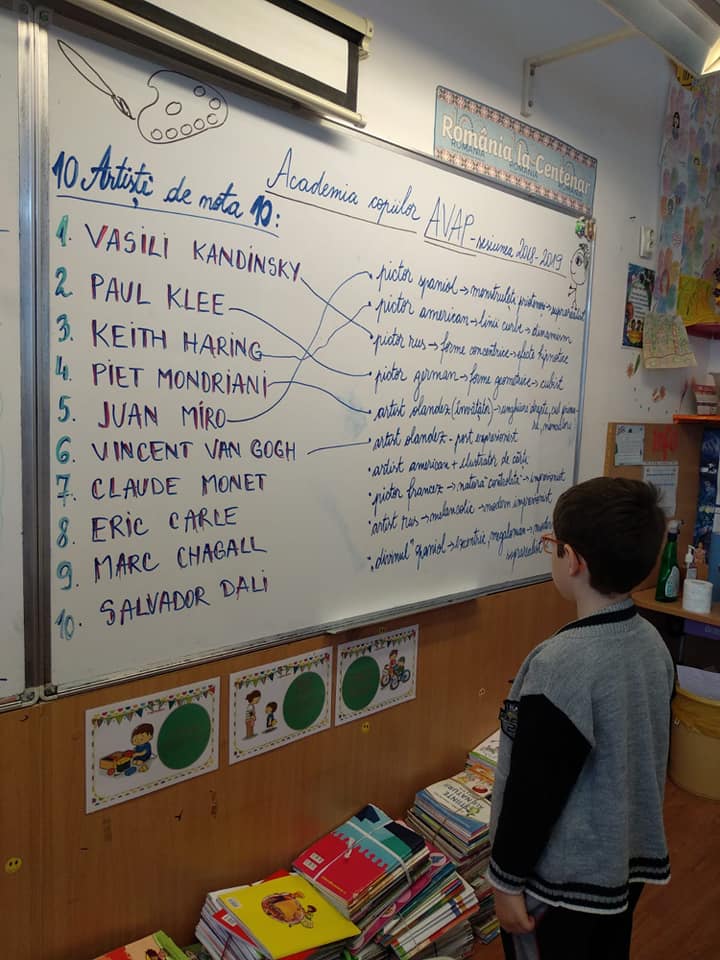 România la Centenar
ROMÂNIA ROMÂNIA ROMÂNIA
Academia copiilor AVAP - sesiunea 2018-2019
10 Artiști de nota 10:
1. VASILI KANDINSKY
2 PAUL KLEE
3. KEITH HARING
4. PIET MONDRIANI
5. JUAN MÍRO
6. VINCENT VAN GOGH
7. CLAUDE MONET
8. ERIC CARLE
9. MARC CHAGALL
10. SALVADOR DALI
pictor spaniol → monstruleți prietenoși → suprarealist
pictor american → linii curbe → dinamism
pictor rus → forme concentrice → efecte hipnotice
pictor german → forme geometrice → cubist
artist olandez (învățător) → unghiuri drepte, cul. prima-
re, nonculori
artist olandez - post expresionist
artist american + ilustrator de cărți
pictor francez → natura → impresionist
artist rus → melancolic → modern impresionist
"divinul" spaniol → excentric, megaloman →
suprarealist